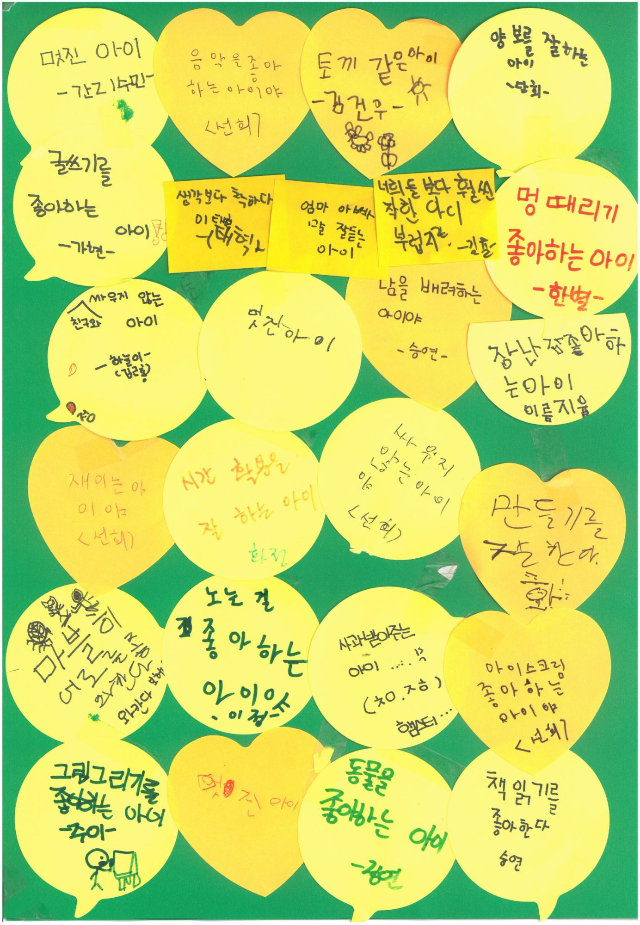 멋진 아이
음악을 좋아
하는 아이야
<선희>
토끼 같은 아이
-김건우-
양보를 잘하는
아이
글쓰기를
좋아하는
아이
-가현-
생각보다 착하다
엄마 아빠
말을 잘듣는
아이
너희들 보다 훨씬
착한 아이
부럽지?
멍 때리기
좋아하는 아이
-한별-
싸우지 않는
친구와 아이
-하늘이-
멋진아이
남을 배려하는
아이야
-승연-
장난 좋아하
는아이
이름지윤
재미는 아
이야
<선희>
시간 활용을
잘 하는 아이
화진
싸우지
않는아이
야
<선희>
만들기를
잘한다.
노는 걸
좋아하는
아이야
사과받아주는
아이
햄스터...
아이스크림
좋아하는
아이야
<선희>
그림그리기를
좋아하는 아이
-주이-
멋진 아이
동물을
좋아하는 아이
책 읽기를
좋아한다
승연